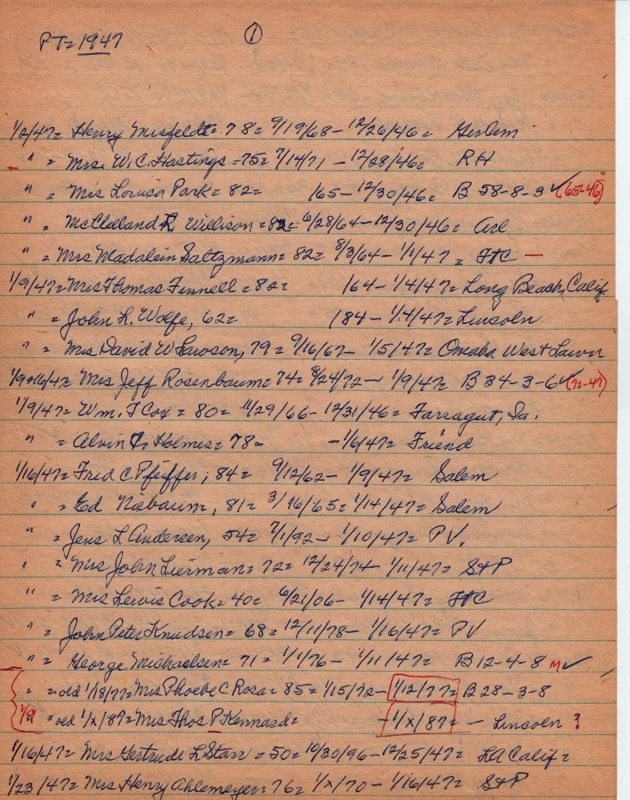 PT= 1947 ①
1/2/47= Henry Misfeldt= 78= 9/19/68-12/26/46= GerCem
" = Mrs. W.C. Hastings =75= 7/14/71 - 12/28/46= RH
" = Mrs Louisa Park= 82= /65-12/30/46= B 58-8-3 ✓ (65-46)
" = McClelland R Willison =82= 6/28/64-12/30/46= Arl
" = Mrs Madalein Saltzmann= 82= 8/3/64- 1/1/47 = FtC —
1/9/47= Mrs Thomas Fennell= 82= /64- 1/4/47= Long Beach, Calif
" = John L. Wolfe, 62= /84- 1/4/47= Lincoln
" = Mrs David W Lawson, 79= 9/16/67- 1/5/47= Omaha West Lawn
1/9+16/47= Mrs Jeff Rosenbaum= 74= 8/24/72- 1/9/47= B 34-3-6 ✓ (72-47)
1/9/47= Wm. F Cox = 80= 11/29/66-12/31/46= Farragut, Ia.
" = Alvin C. Holmes= 78= -1/6/47= Friend
1/16/47= Fred C Pfeiffer, 84= 9/12/62- 1/9/47= Salem
" = Ed Niebaum, 81= 3/16/65= 1/14/47= Salem
" = Jens L Andersen, 54= 7/1/92- 1/10/47= PV.
" = Mrs John Lierman= 72= 12/24/74- 1/11/47= StP
" = Mrs Lewis Cook= 40= 6/21/06- 1/14/47= FtC
" = John Peter Knudsen= 68= 12/11/78- 1/16/47= PV
" = George Michaelsen= 71= 1/1/76- 1/11/47= B12-4-8 M ✓
" = old 1/18/77= Mrs Phoebe C Rosa= 85= 1/15/72- 1/12/77= B 28-3-8
= old 1/x/87= Mrs Thos P Kennard= -1/x/87= - Lincoln ?
1/16/47= Mrs Gertrude L Starr= 50= 10/30/96-12/25/47= LA Calif=
1/23/47= Mrs Henry Ahlemeyer= 76= 1/x/70- 1/16/47= StP